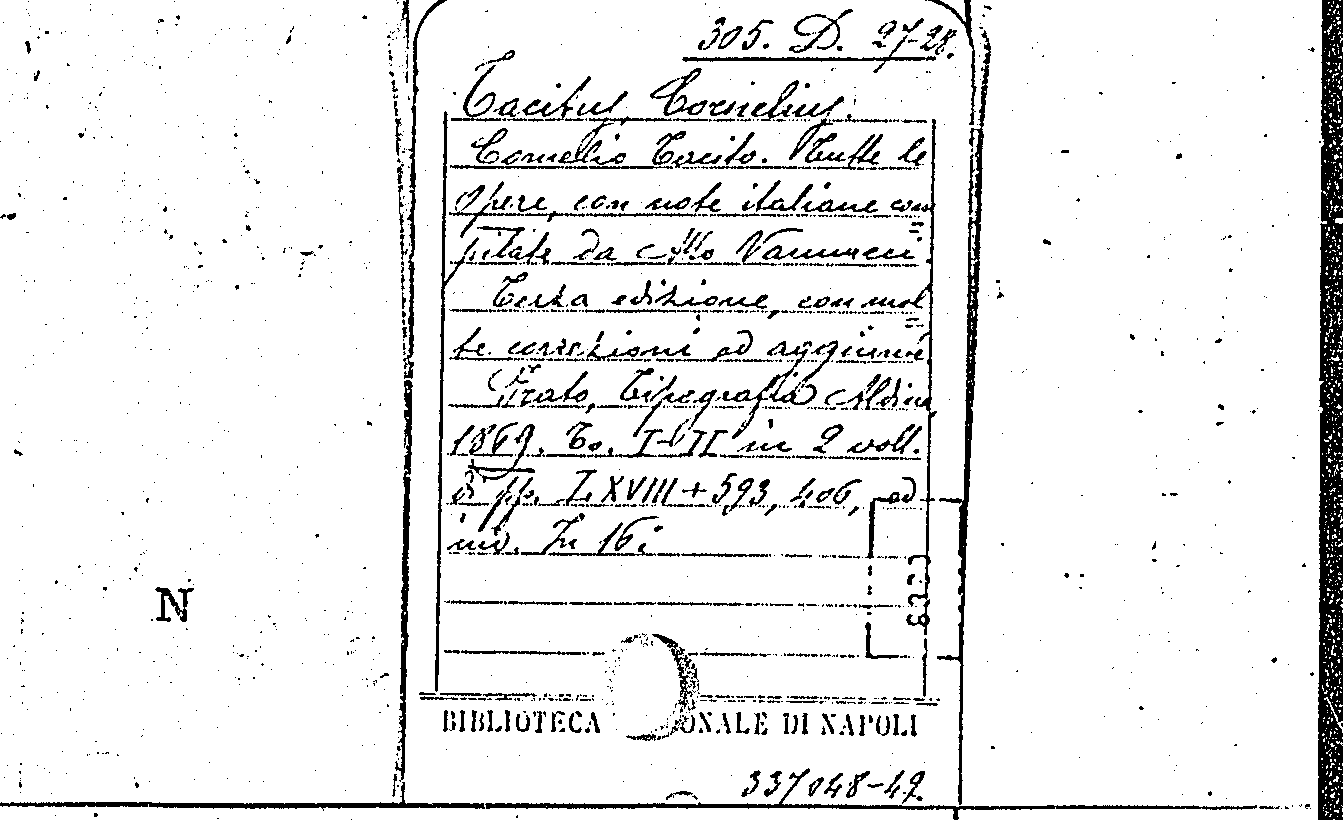 305. D. 27-28.
Tacitus, Cornelius.
Cornelio Tacito. Tutte le
opere, con note italiane com
pilate da Atto Vannucci.
Terza edizione, con mol
te correzioni ed aggiunte.
Prato, Tipografia Aldina,
1869. To. I-II in 2 voll.
di pp. LXVIII + 593, 406, ed
ind. In 16:
N
BIBLIOTECA ONALE DI NAPOLI
337048-49.